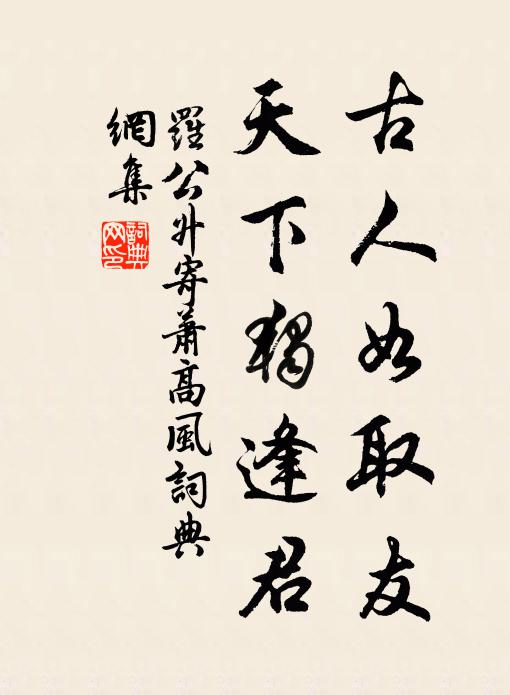 古人如取友
天下獨逢君
羅公升寄蕭高風詞典
網集
詞典
网印